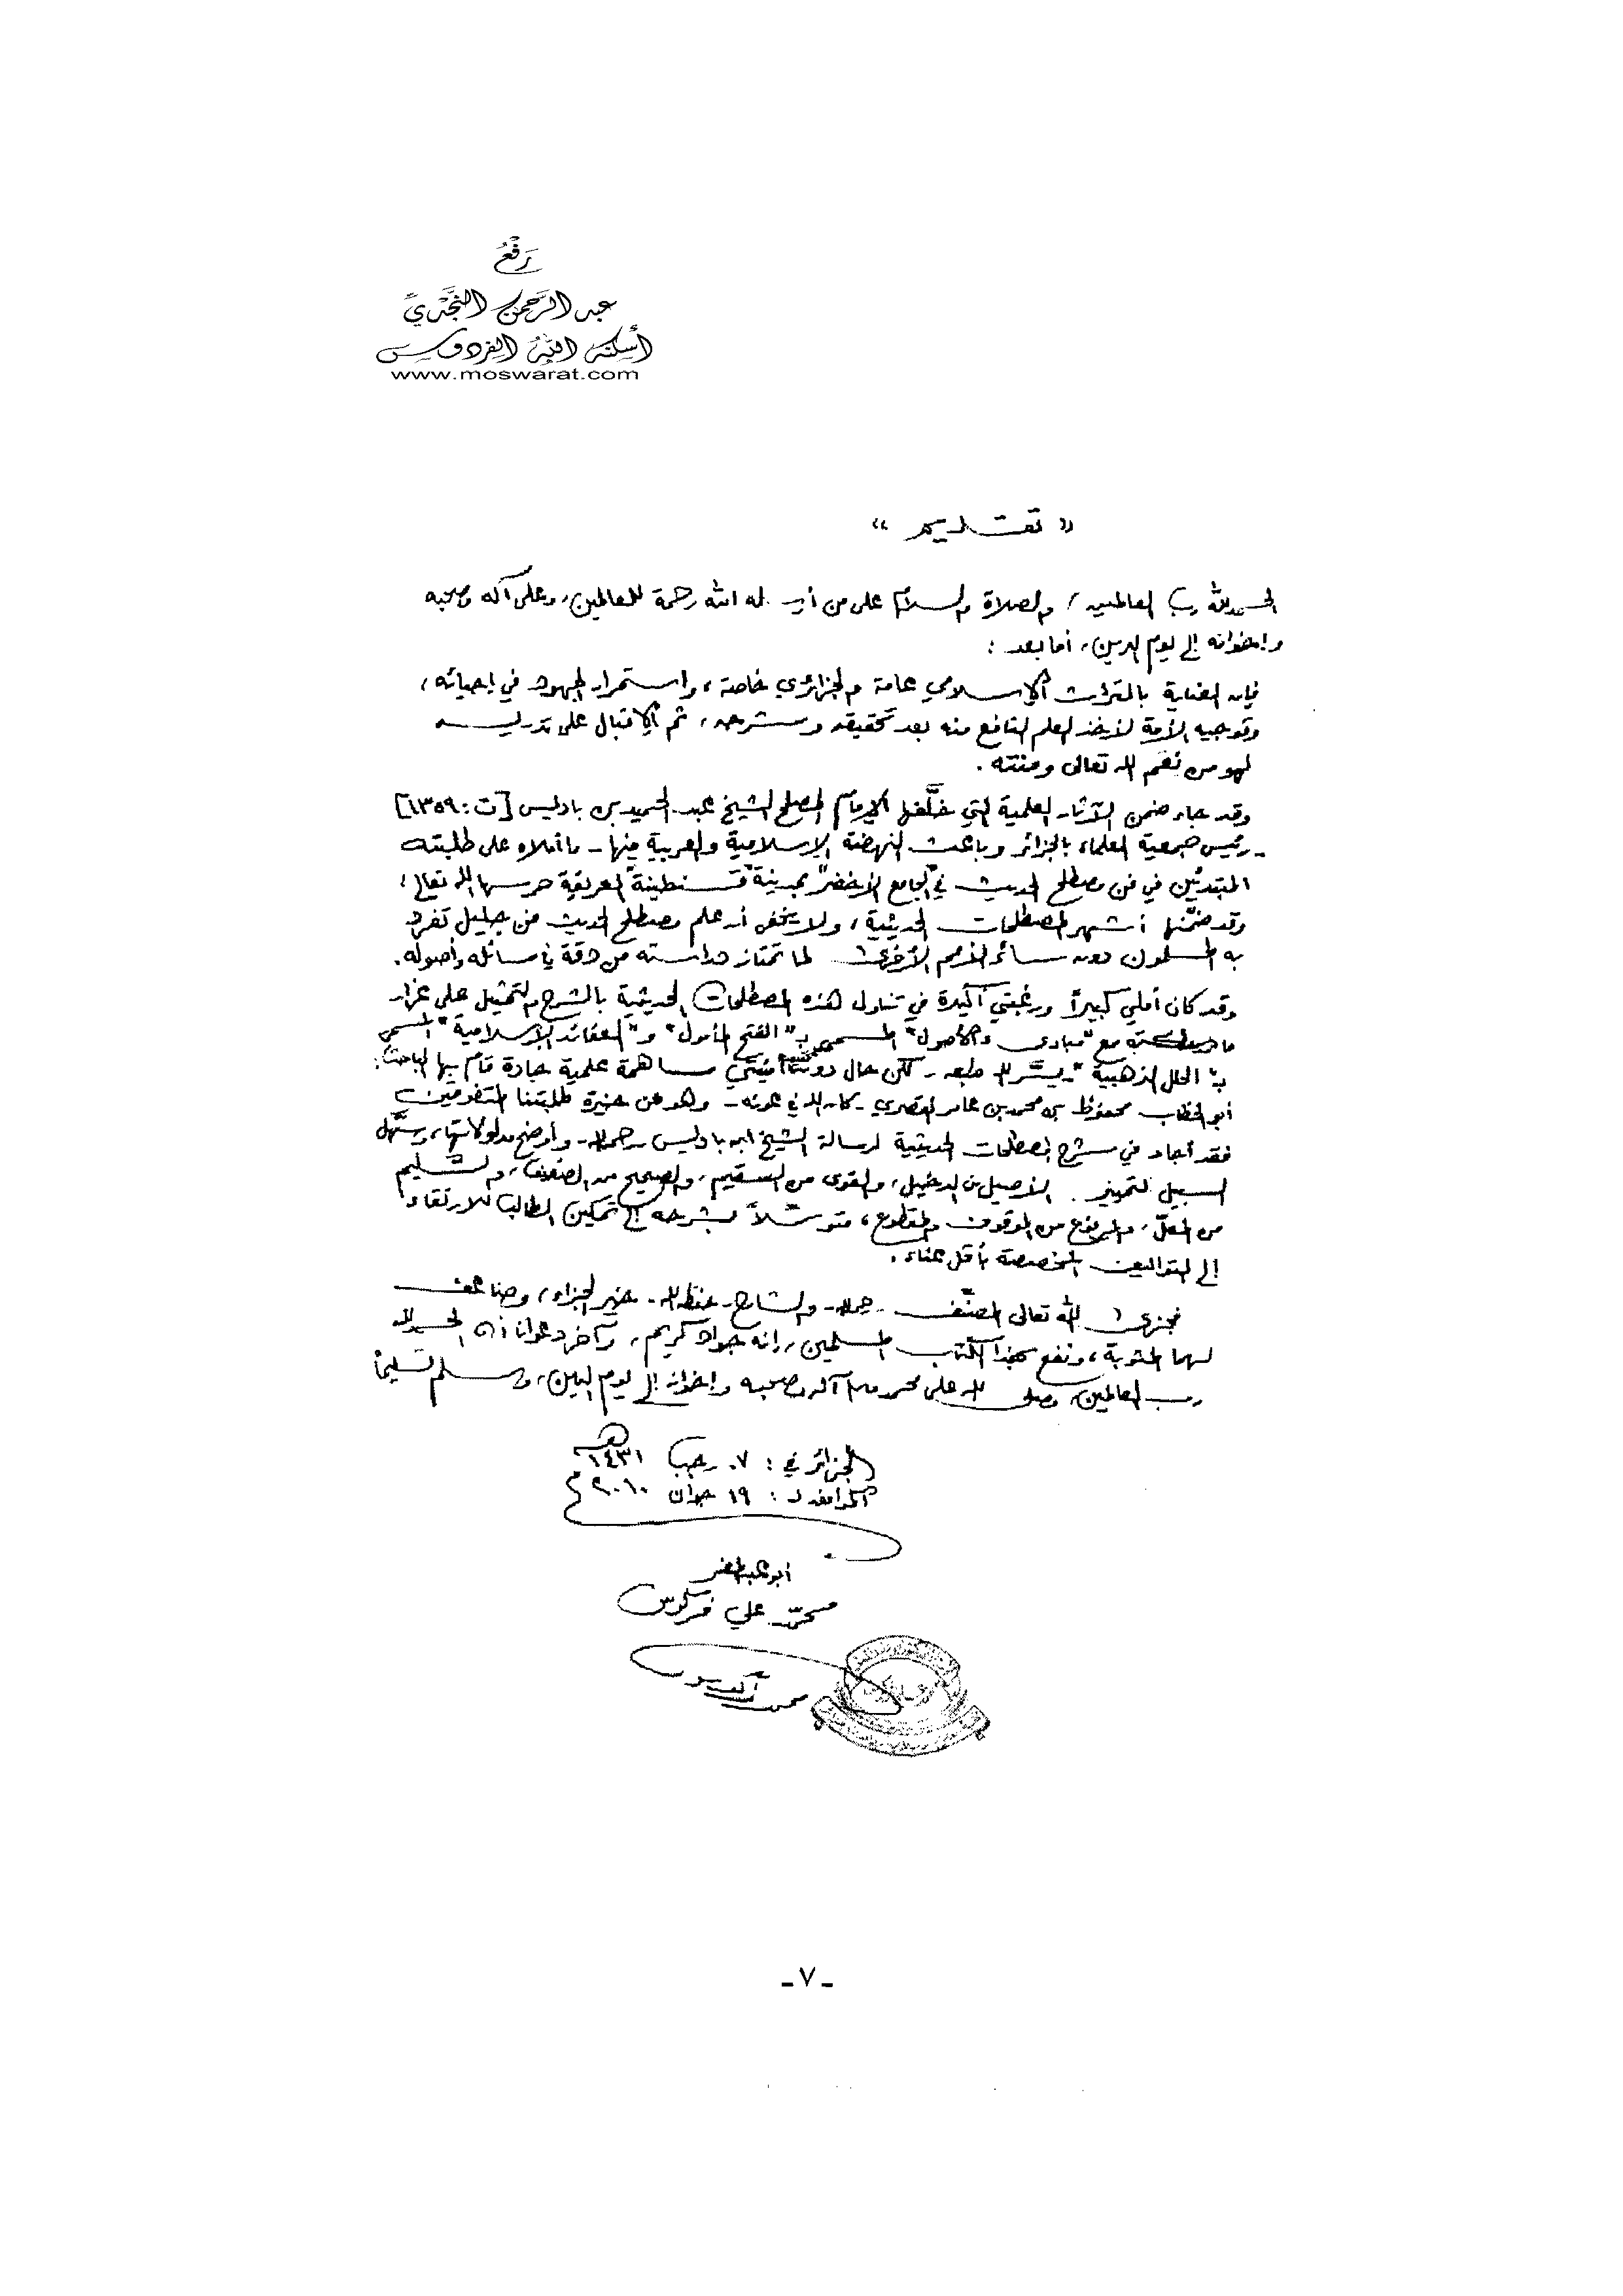 رَفْعُ
عبد الرَّحمن النَّجْديِّ
أسكنه اللهُ الفردوس
www.moswarat.com
« تقديم »
الحمد لله رب العالمين، والصلاة والسلام على من أرسله الله رحمة للعالمين، وعلى آله وصحبه
وإخوانه إلى يوم الدين، أما بعد :
فإن العناية بالتراث الإسلامي عامة والجزائري خاصة، واستمرار الجهود في إحيائه،
وتوجيه الأمة لأخذ العلم النافع منه بعد تحقيقه وشرحه، ثم الإقبال على تدريسه
لهو من نعم الله تعالى ومنته .
وقد جاء ضمن الآثار العلمية التي خلَّفها الإمام المصلح الشيخ عبد الحميد بن باديس [ت: ١٣٥٩]
ـ رئيس جمعية العلماء بالجزائر وباعث النهضة الإسلامية والعربية فيها ـ ما أملاه على طلبته
المبتدئين في فن مصطلح الحديث في "الجامع الأخضر" بمدينة "قسنطينة" العريقة حرسها الله تعالى،
وقد ضمَّنها أشهر المصطلحات الحديثية، ولا يخفى أن علم مصطلح الحديث فن جليل تفرد
به المسلمون دون سائر الأمم الأخرى لما تمتاز دراسته من دقة في مسائله وأصوله.
وقد كان أملي كبيراً ورغبتي أكيدة في تناول هذه المصطلحات الحديثية بالشرح والتمثيل على غرار
ما مع "مبادئ الأصول" المسمى بـ "الفتح المأمول" و "العقائد الإسلامية" المسمى
بـ "الحلل الذهبية" ـ يسَّر الله طبعه ـ لكن حال دون أمنيتي مساهمة علمية جادة قام بها الباحث:
أبو الخطاب محفوظ بن محمد بن عامر القصري ـ كان الله في عونه ـ وهو من خيرة طلبتنا المتفوقين
فقد أجاد في شرح المصطلحات الحديثية لرسالة الشيخ ابن باديس ـ رحمه الله ـ وأوضح مدلولاتها، وسهّل
السبيل لتمييز الأصيل من الدخيل، والقوي من السقيم، والصحيح من الضعيف، والسليم
من المعلّ، والمرفوع من الموقوف والمقطوع، متوسِّلاً بشرحه إلى تمكين الطالب للارتقاء
إلى التواليف المخصصة بأقل عناء .
فجزى الله تعالى المصنِّف ـ رحمه الله ـ والشارح ـ حفظه الله ـ خير الجزاء، وضاعف
لهما المثوبة، ونفع بهذا الكتاب المسلمين، إنه جواد كريم، وآخر دعوانا أن الحمد لله
رب العالمين، وصلى الله على محمد وعلى آله وصحبه وإخوانه إلى يوم الدين، وسلم تسليماً
الجزائر في : ٠٧ رجب ١٤٣١ هـ
الموافق لـ : ١٩ جوان ٢٠١٠ م
أبو عبد المعز
محمّد علي فركوس
ـ ٧ ـ